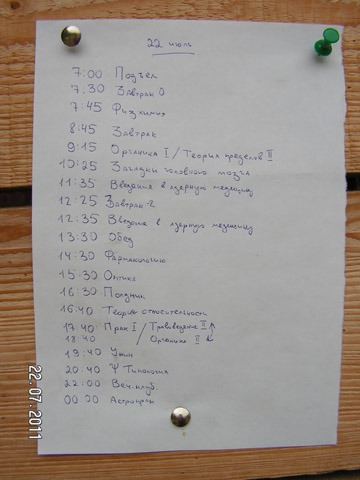 22 июль
7:00 Подъем
7:30 Завтрак 0
7:45 Физхимия
8:45 Завтрак
9:15 Органика I / Теория пределов II
10:25 Загадки головного мозга
11:35 Введение в ядерную медицину
12:25 Завтрак-2
12:35 Введение в ядерную медицину
13:30 Обед
14:30 Фармакология
15:30 Оптика
16:30 Полдник
16:40 Теория относительности
17:40 Прак I / Травоведение II
18:40 Органика II
19:40 Ужин
20:40 Ψ Типология
22:00 Веч. клуб.
00:00
22.07.2011